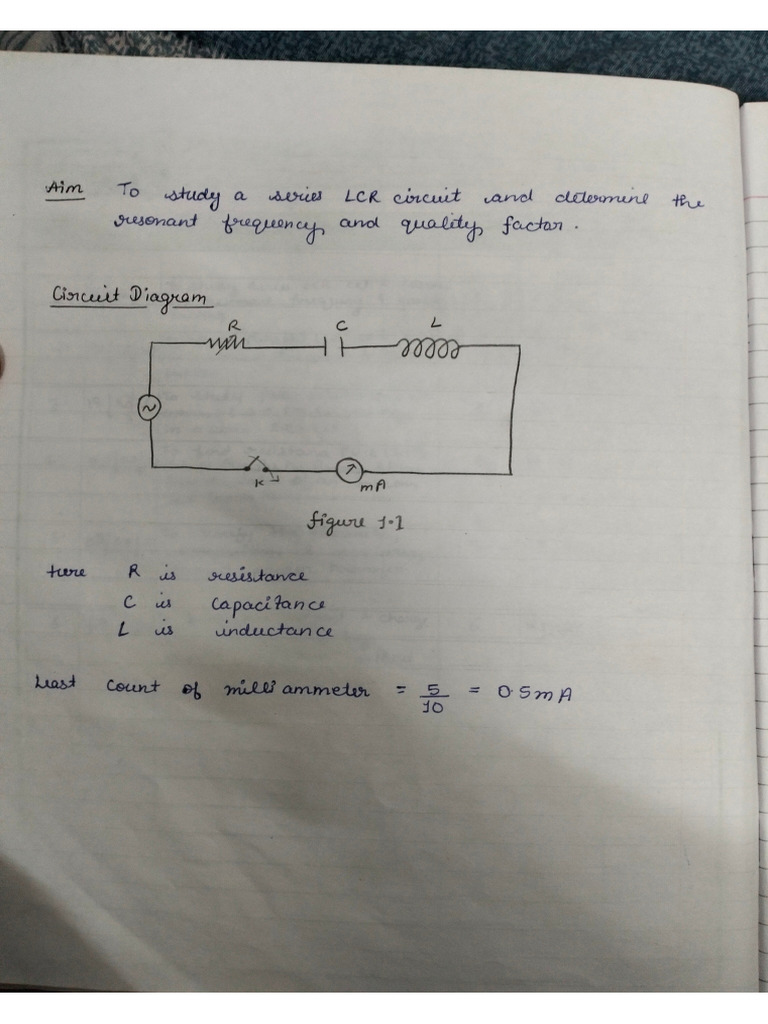 Aim To study a series LCR circuit and determine the
resonant frequency and quality factor.
Circuit Diagram
R C L
K mA
figure 1.1
Here R is resistance
C is Capacitance
L is inductance
Least count of milli ammeter = 5/10 = 0.5mA